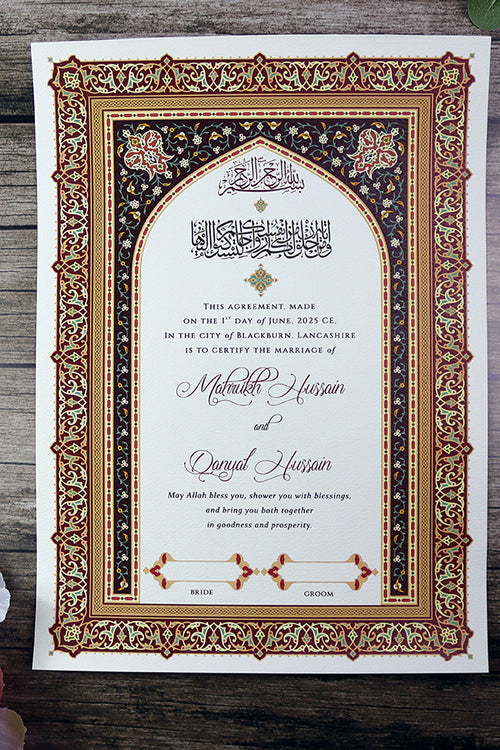 بسم الله الرحمن الرحيم
ومن آياته أن خلق لكم من أنفسكم أزواجا لتسكنوا إليها
This agreement, made
on the 1st day of June, 2025 CE,
In the city of Blackburn, Lancashire
is to certify the marriage of
Mahrukh Hussain
and
Danyal Hussain
May Allah bless you, shower you with blessings,
and bring you both together
in goodness and prosperity.
BRIDE
GROOM